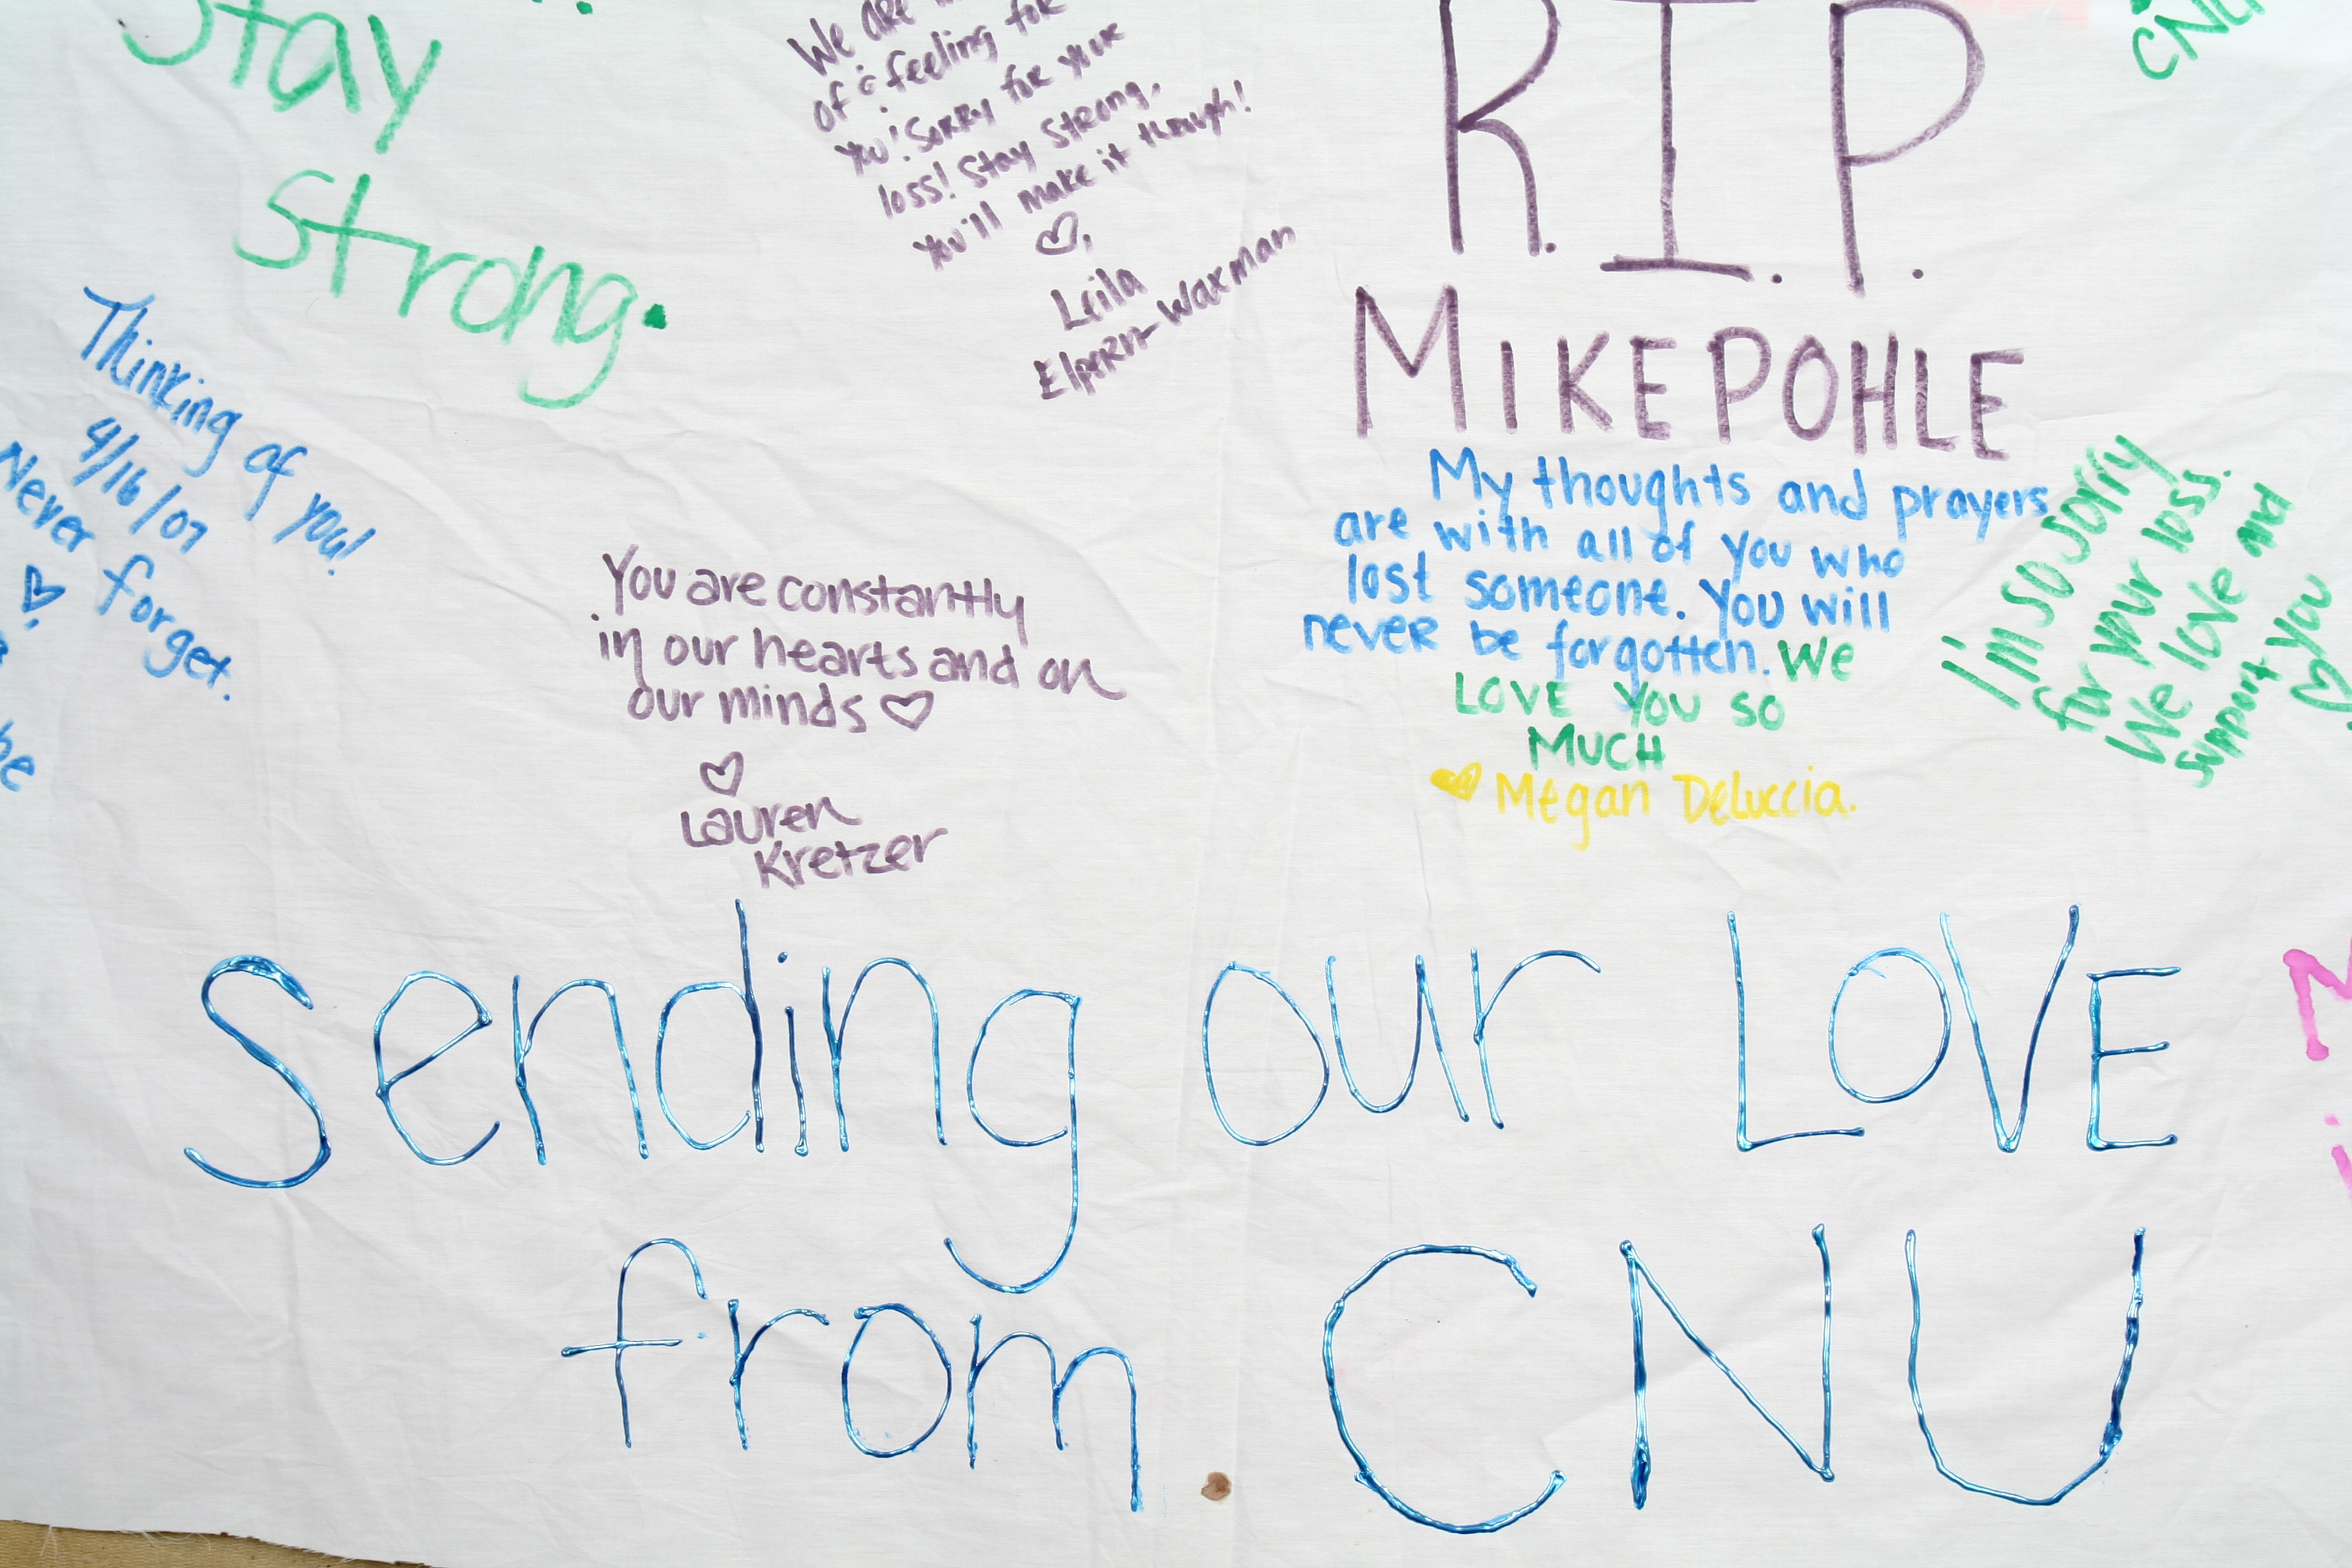 Stay
Strong.
We are
of a feeling for
you! Sorry for your
loss! Stay Strong,
You'll make it though!
Leila
Waxman
R.I.P.
MIKE POHLE
CNU
Thinking of you!
4/16/07
Never forget.
be
You are constantly
in our hearts and on
our minds
Lauren
Kretzer
My thoughts and prayers
are with all of you who
lost someone. You will
never be forgotten. We
LOVE YOU SO
MUCH
Megan DeLuccia.
I'm so sorry
for your loss.
We love and
support you
Sending our LOVE
from CNU